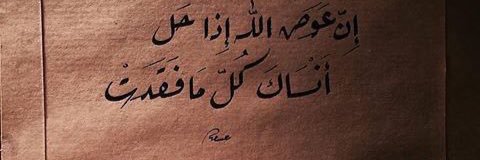 إِنّ عَوَض اللّه إِذا حَل
أَنْسَاكَ كُلّ مَا فَقَدَتْ